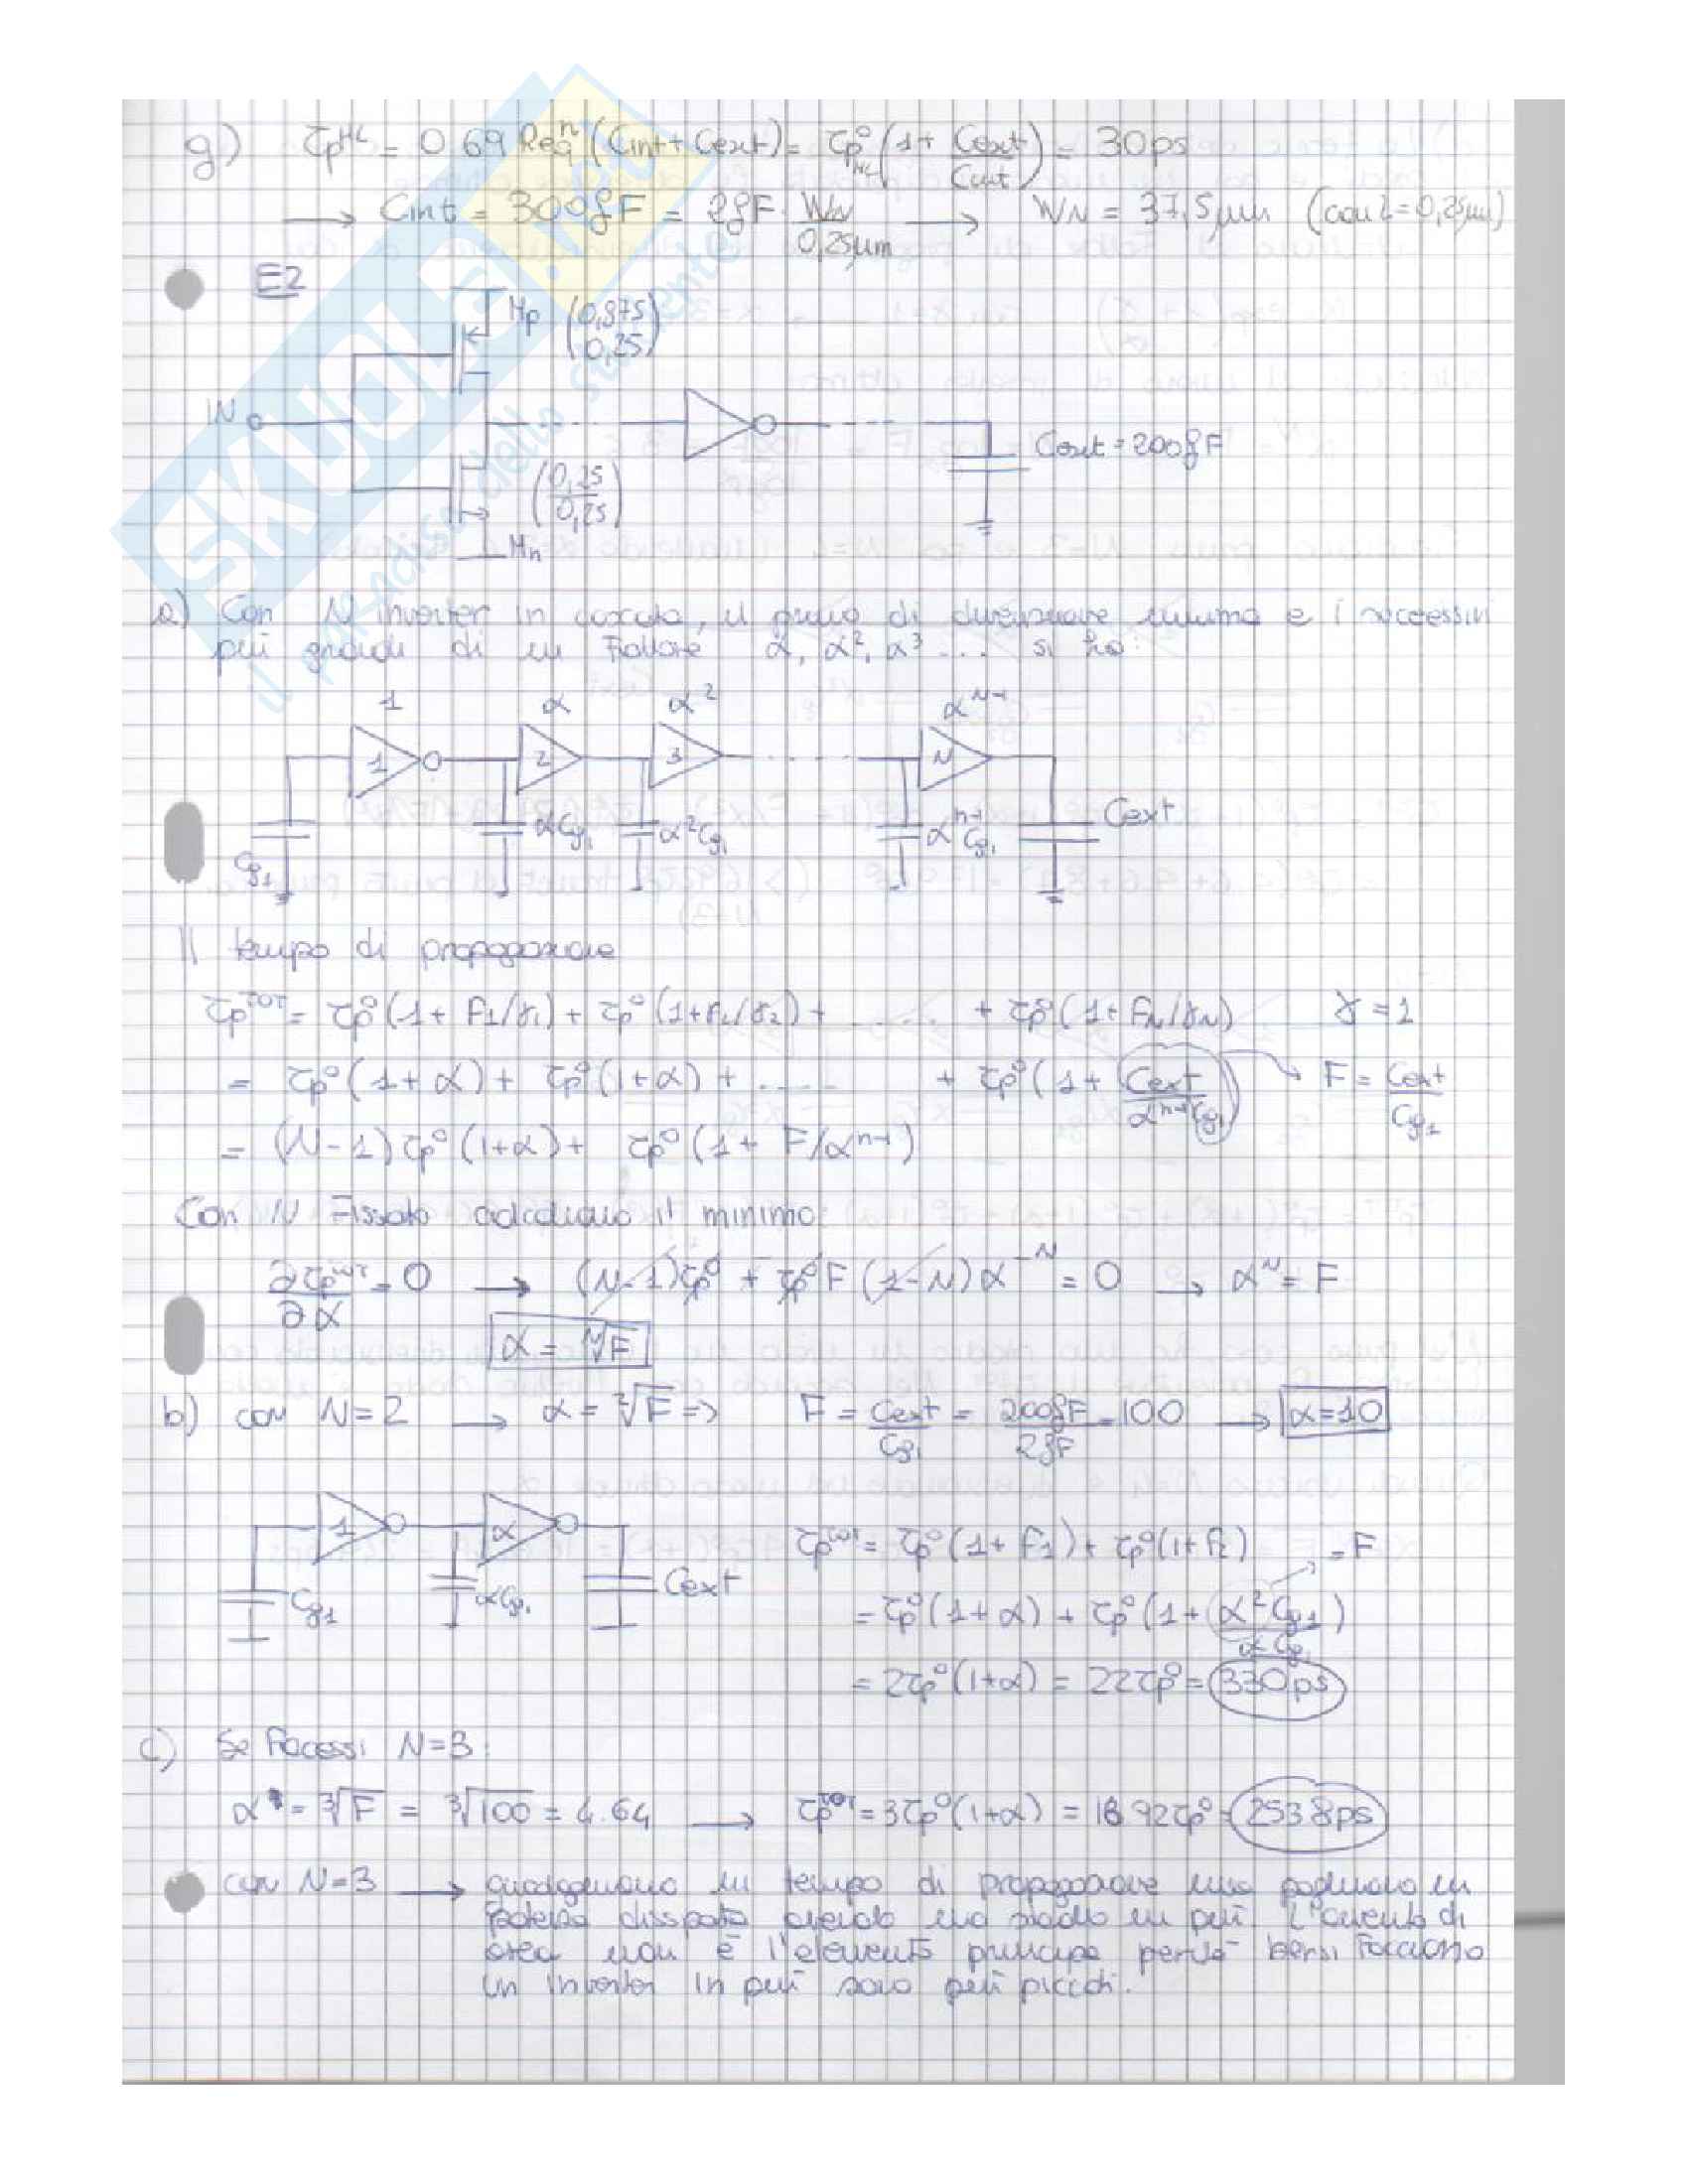 g) τp^HL = 0.69 Req^n (Cint + Cext) = τp°HL (1 + Cext/Cint) = 30ps
→ Cint = 300fF = 2fF · WN/0,25µm → WN = 37,5µm (con L=0,25µm)
E2
Mp (0,875/0,25)
IN
Cext = 200fF
(0,25/0,25)
Mn
a) Con N inverter in cascata, il primo di dimensione minima e i successivi
più grandi di un fattore α, α², α³ ... si ha:
1 α α² α^N-1
1 2 3 N
Cg1 αCg1 α²Cg1 α^n-1 Cg1 Cext
Il tempo di propagazione
τp^TOT = τp°(1+F1/γ1) + τp°(1+F2/γ2) + ..... + τp°(1+FN/γN) γ=1
= τp°(1+α) + τp°(1+α) + ..... + τp°(1 + Cext/α^n-1 Cg1) → F = Cext/Cg1
= (N-1)τp°(1+α) + τp°(1 + F/α^n-1)
Con N fissato calcoliamo il minimo
∂τp^TOT/∂α = 0 → (N-1)τp° + τp°F(1-N)α^-N = 0 → α^N = F
α = ᴺ√F
b) con N=2 → α = ²√F => F = Cext/Cg1 = 200fF/2fF = 100 → α=10
1 α
Cg1 αCg1 Cext
τp^TOT = τp°(1+F1) + τp°(1+F2) = F
= τp°(1+α) + τp°(1 + α²Cg1/αCg1)
= 2τp°(1+α) = 22τp° = 330ps
c) Se facessi N=3:
α = ³√F = ³√100 = 4.64 → τp^TOT = 3τp°(1+α) = 16.92τp° = 253.8ps
con N=3 → guadagniamo in tempo di propagazione ma paghiamo in
potenza dissipata avendo uno stadio in più. L'aumento di
area non è l'elemento principe perché bensì facciano
un inverter in più sono più piccoli.
SKUOLA.net
il paradiso dello studente